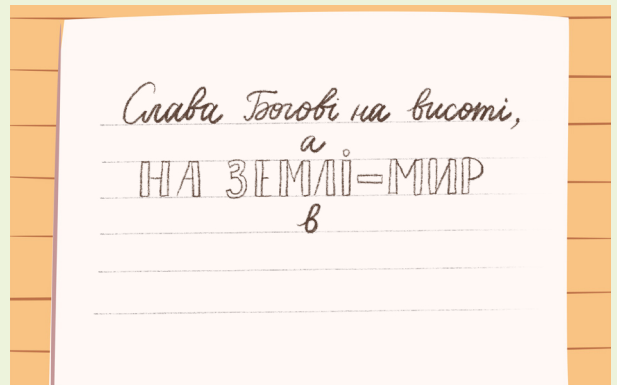 Слава Богові на висоті,
а
НА ЗЕМЛІ=МИР
в